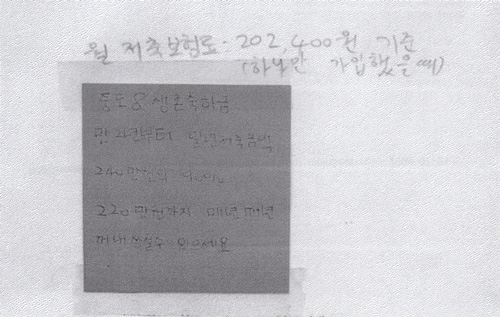 월 저축보험료: 202,400원 기준
(하나만 가입했을때)
중도 & 생존축하금
만 2년부터 일년저축금액
240만원의
220만원까지 매년매년
꺼내쓰실수 있으세요